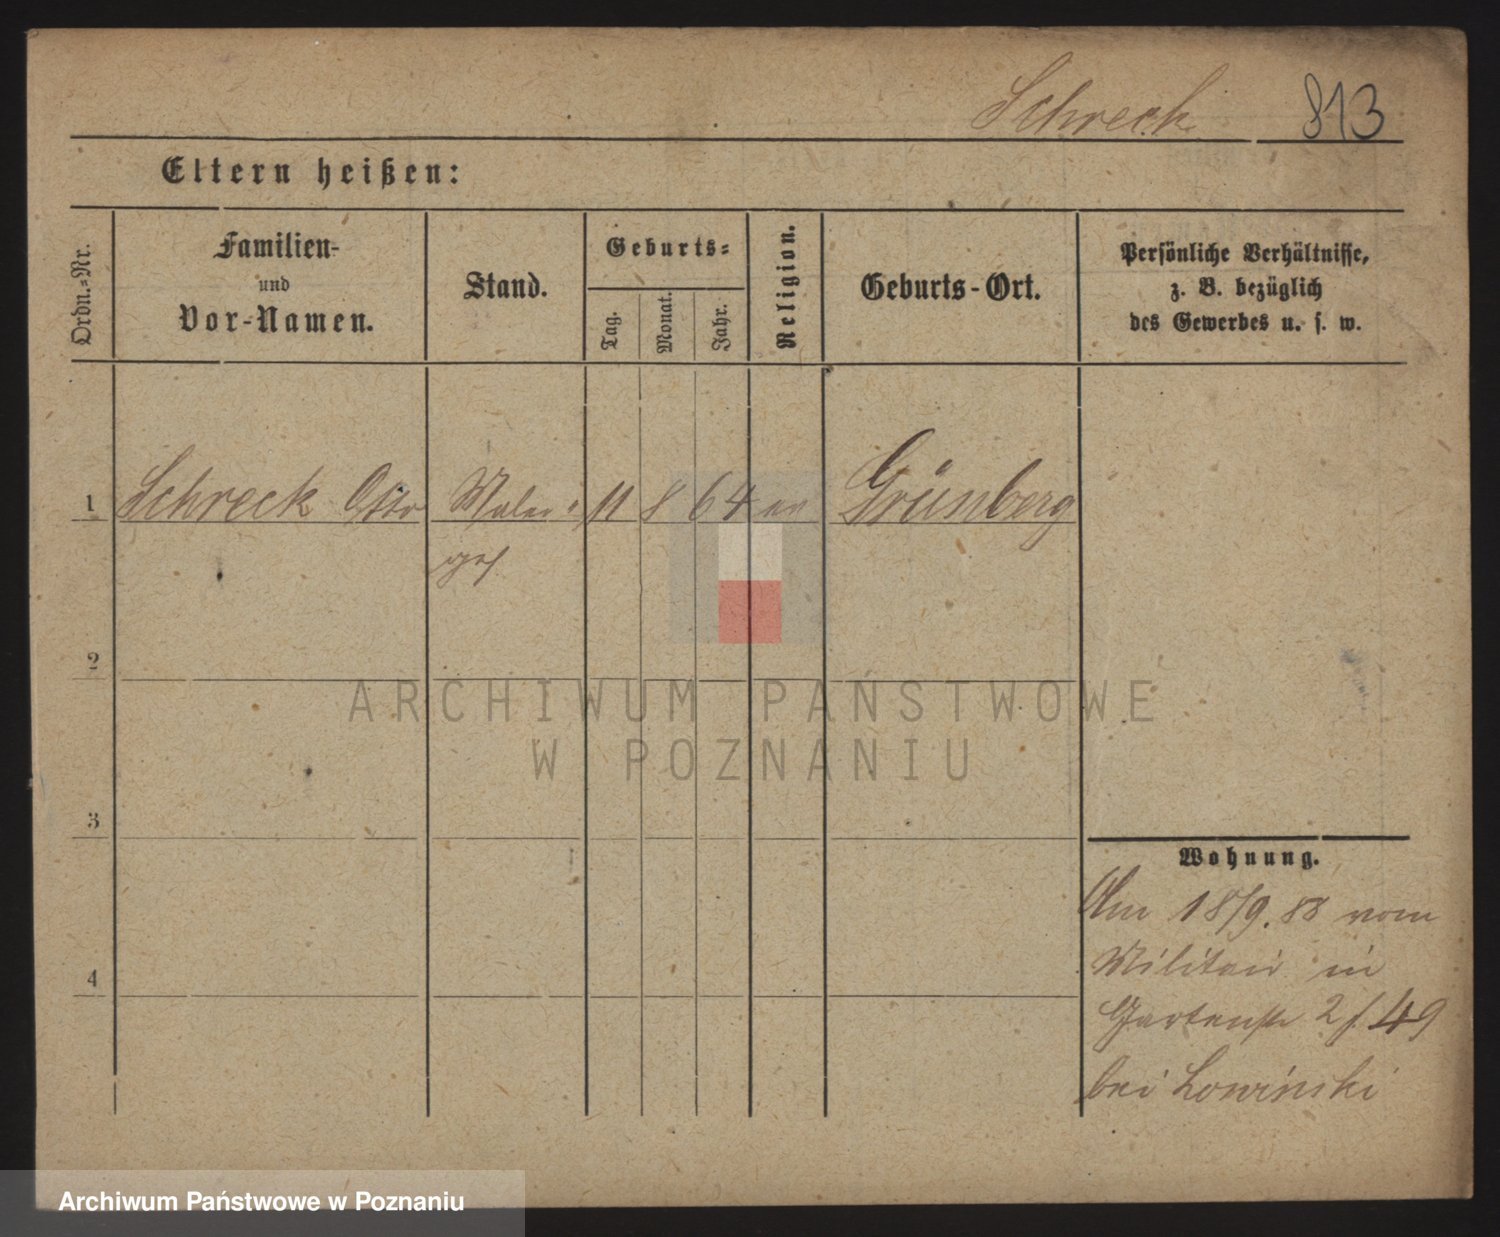 Schreck 813
Eltern heißen:
Ordn.-Nr.
Familien-
und
Vor-Namen.
Stand.
Geburts-
Tag.
Monat.
Jahr.
Religion.
Geburts-Ort.
Persönliche Verhältnisse,
z. B. bezüglich
des Gewerbes u. s. w.
1 Schreck Otto Maler 11 8 64 ev Grünberg
2
3
4
Wohnung.
Am 18/9.88 vom
Militair in
Gartenstr 2 49
bei Lowinski
ARCHIWUM PAŃSTWOWE
W POZNANIU
Archiwum Państwowe w Poznaniu